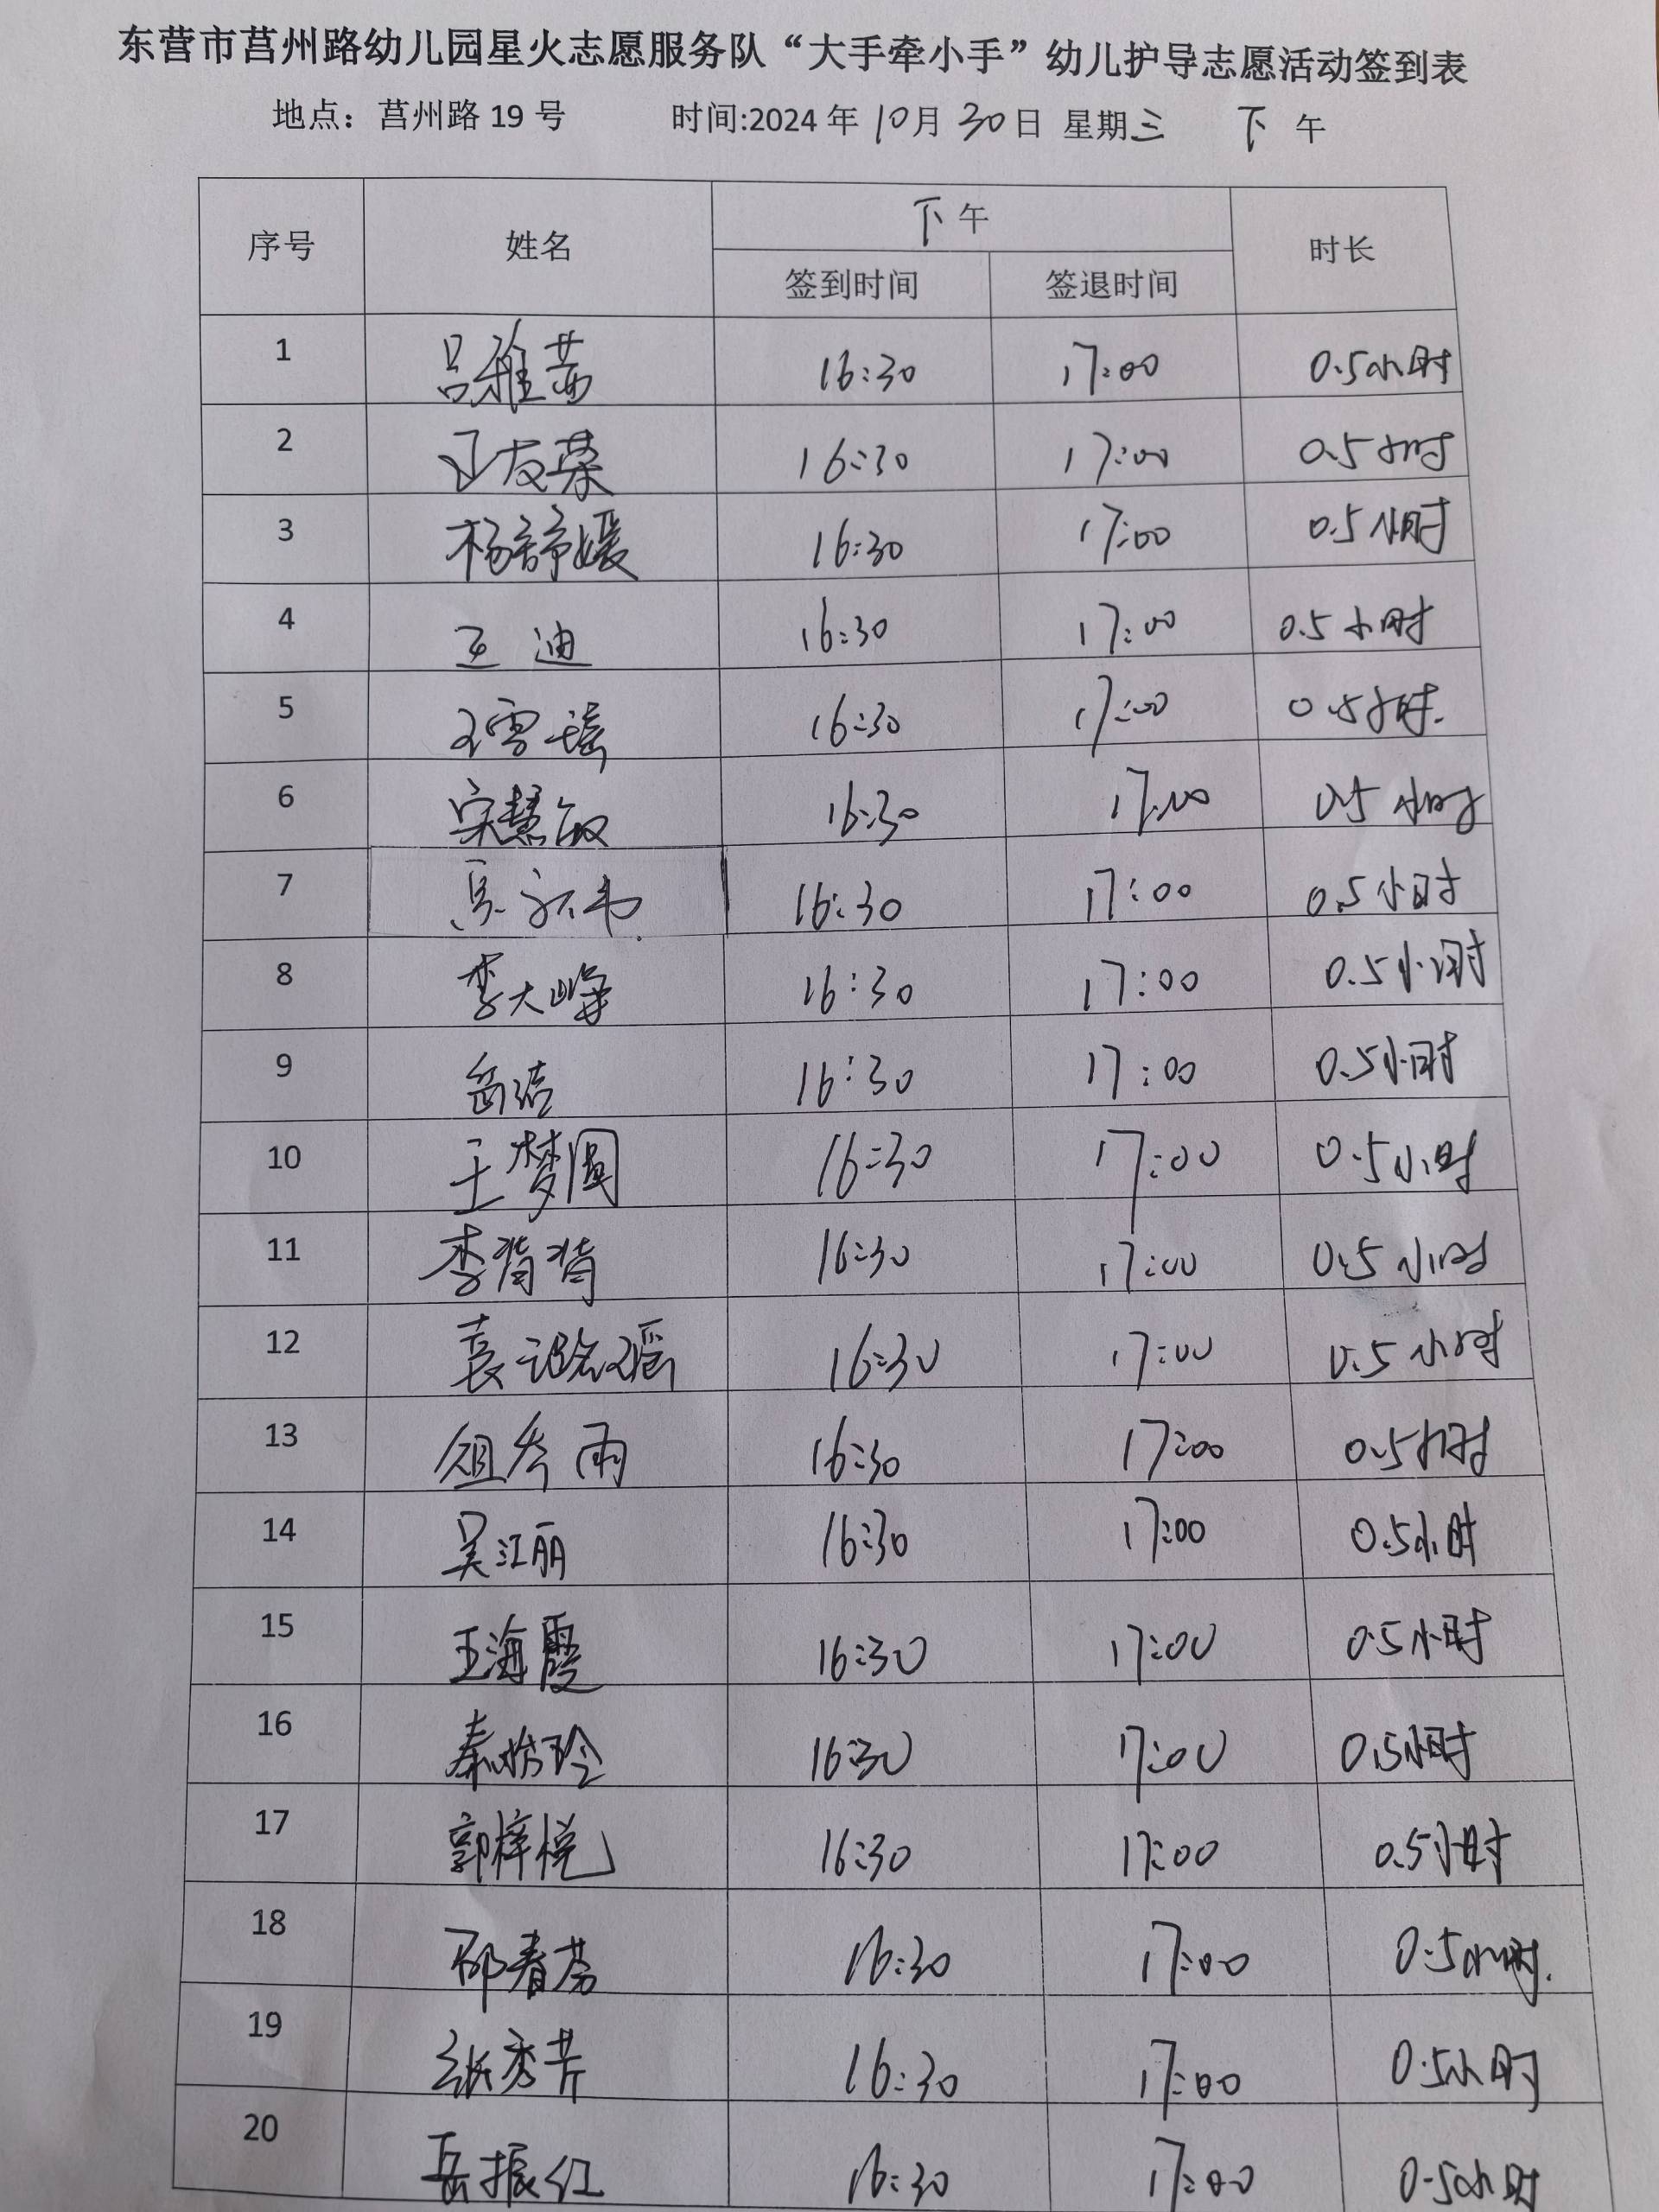 东营市莒州路幼儿园星火志愿服务队“大手牵小手”幼儿护导志愿活动签到表
地点：莒州路 19 号 时间:2024 年 10月 30日 星期三 下 午
序号 姓名 下 午 时长
签到时间 签退时间
1 吕雅茜 16:30 17:00 0.5小时
2 王友荣 16:30 17:00 0.5小时
3 杨舒媛 16:30 17:00 0.5小时
4 王迪 16:30 17:00 0.5小时
5 王雪瑶 16:30 17:00 0.5小时.
6 宋慧敏 16:30 17:00 0.5小时
7 16:30 17:00 0.5小时
8 李大峰 16:30 17:00 0.5小时
9 岳洁 16:30 17:00 0.5小时
10 王梦圆 16:30 17:00 0.5小时
11 李猗猗 16:30 17:00 0.5小时
12 16:30 17:00 0.5小时
13 16:30 17:00 0.5小时
14 吴江丽 16:30 17:00 0.5小时
15 王海霞 16:30 17:00 0.5小时
16 16:30 17:00 0.5小时
17 郭梓悦 16:30 17:00 0.5小时
18 邵春芳 16:30 17:00 0.5小时.
19 张秀芹 16:30 17:00 0.5小时
20 岳振红 16:30 17:00 0.5小时